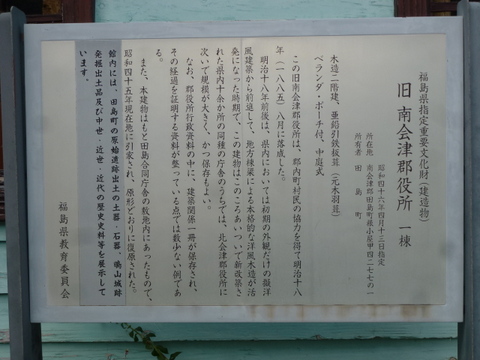 福島県指定重要文化財(建造物)
旧南会津郡役所 一棟
昭和四十六年四月十三日指定
所在地 南会津郡田島町根小屋甲四二七七の一
所有者 田島町
木造二階建、亜鉛引鉄板葺(元木羽葺)
ベランダ・ポーチ付、中庭式
この旧南会津郡役所は、郡内町村民の協力を得て明治十八
年(一八八五)八月に落成した。
明治十八年前後は、県内においては初期の外観だけの擬洋
風建築から前進して、地方棟梁による本格的な洋風木造が活
発になった時期で、この建物はこのころあいついで新改築さ
れた県内十余か所の同種の庁舎のうちでは、北会津郡役所に
次いで規模が大きく、かつ保存もよい。
なお、郡役所行政資料の中に、建築関係一冊が保存され、
その経過を証明する資料が整っている点では数少ない例であ
る。
また、本建物はもと田島合同庁舎の敷地内にあったもので、
昭和四十五年現在地に引家され、原形どおりに復原された。
館内には、田島町の原始遺跡出土の土器・石器、鴫山城跡
発掘出土品及び中世・近世・近代の歴史資料等を展示して
います。
福島県教育委員会